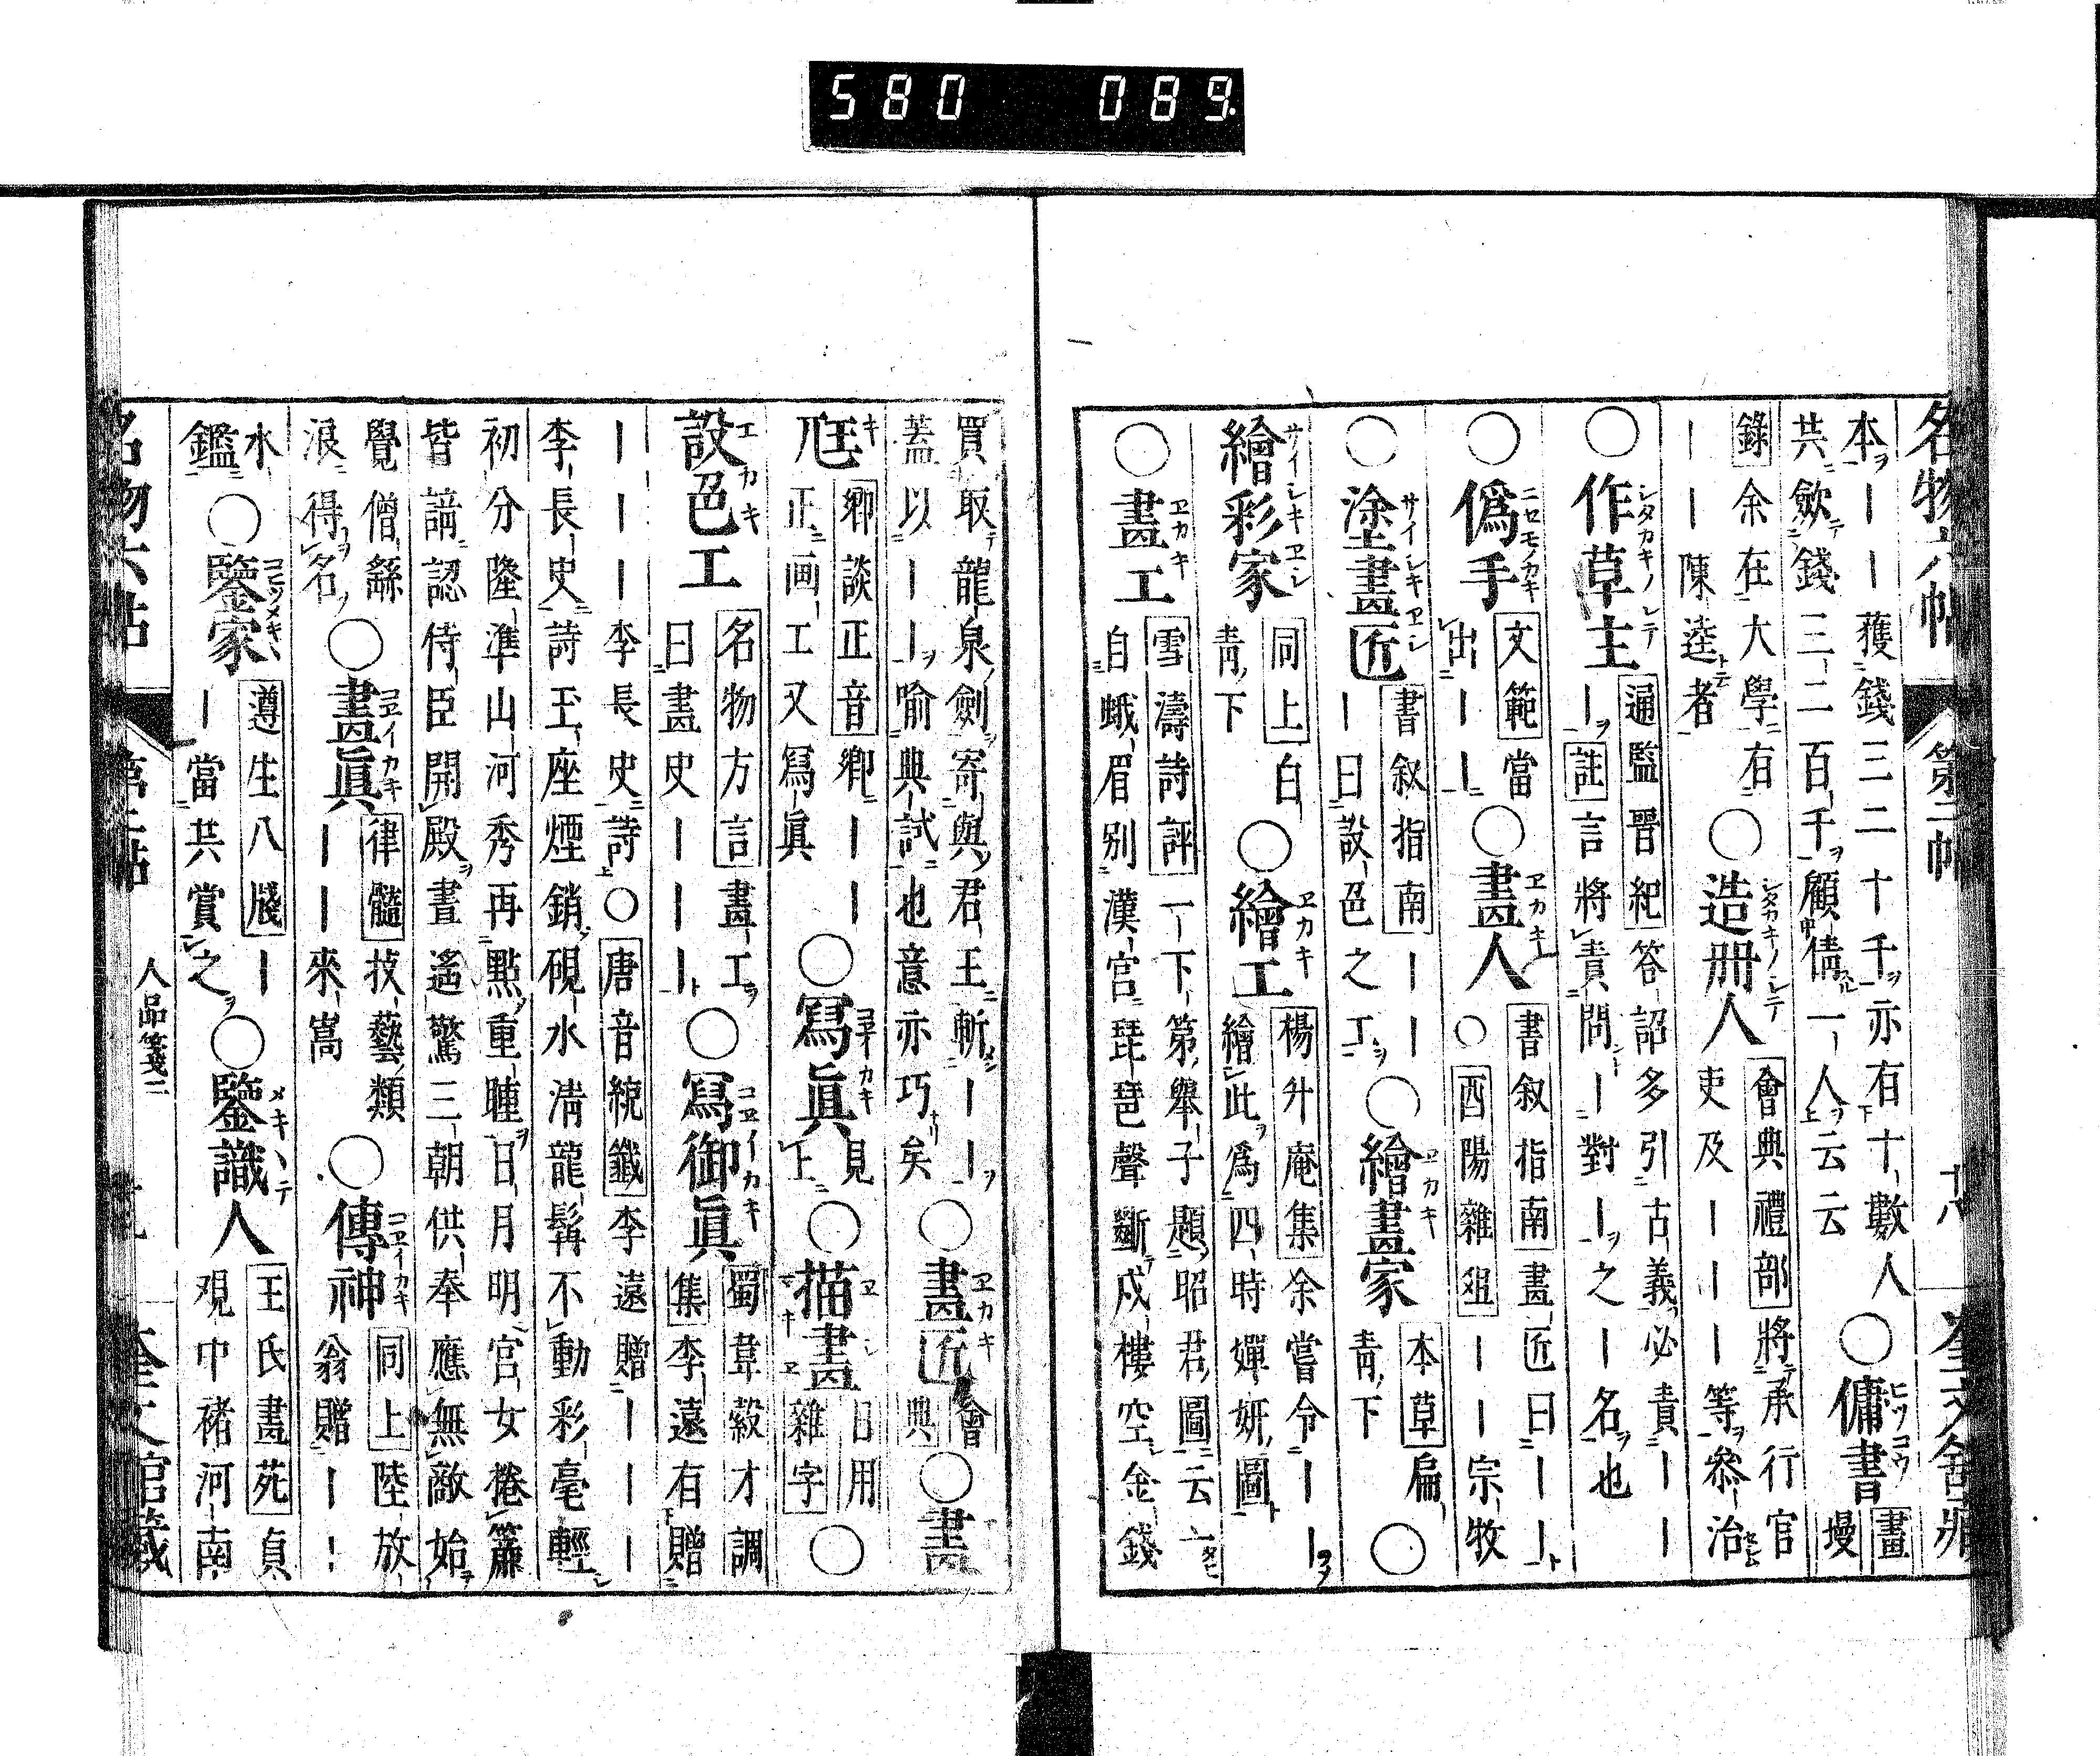 580 089
名物六帖 第二帖 十八 奎文舘藏
本ヲ一一獲錢三二十千ヲ亦有十數人
共歛テ錢三二百千ヲ顧倩一人ヲ云云○傭書 畫墁
錄 余在大學有
一一陳逵ト者 ○造册人 會典禮部 將承行官
吏及一一一等ヲ叅治
○作草主 通監晉紀 答詔多引古義必責一一
一ヲ 註 言將責問一對一ヲ之一名ヲ也
○僞手 文範 當
出一一 ○畫人 書叙指南 畫匠曰一一ト
○酉陽雜俎 一一宗牧
○塗畫匠 書叙指南 一一
一曰設色之工ヲ ○繪畫家 本草 扁
青下 ○
繪彩家 同上 白
青下 ○繪工 楊升庵集 余嘗令一一ヲ
繪此ヲ爲四時嬋妍圖ト
○畫工 雪濤詩評 一下第舉子題昭君圖云一
自蛾眉别漢宮琵琶聲斷戍樓空金錢
買取テ龍泉劍ヲ寄與君王斬一一ヲ
蓋以一一ヲ喻典試也意亦巧ナリ矣 ○畫匠 會典 ○畫
尫 卿談正音 卿一一
正画工又寫眞 ○寫眞 見上 ○描畫 日用雜字 ○
設色工 名物方言 畫工ヲ
曰畫史一一一ト ○寫御眞 蜀韋縠才調
集 李遠有贈
一一一李長史詩○唐音統籤 李遠贈一一一
李長史詩玉座煙銷硯水淸龍髯不動彩毫輕
初分隆準山河秀再點重瞳日月明宮女捲簾
皆諳認侍臣開殿ヲ晝遙驚三朝供奉應無敵始
覺僧繇
浪得ヲ名ヲ ○畫眞 律髓 技藝類
一一來嵩 ○傳神 同上 陸放
翁贈一一
水
鑑 ○鑒家 遵生八牋 一
一當共賞之ヲ ○鑒識人 王氏畫苑 貞
觀中褚河南
名物六帖 第二帖 人品箋二 奎文舘藏